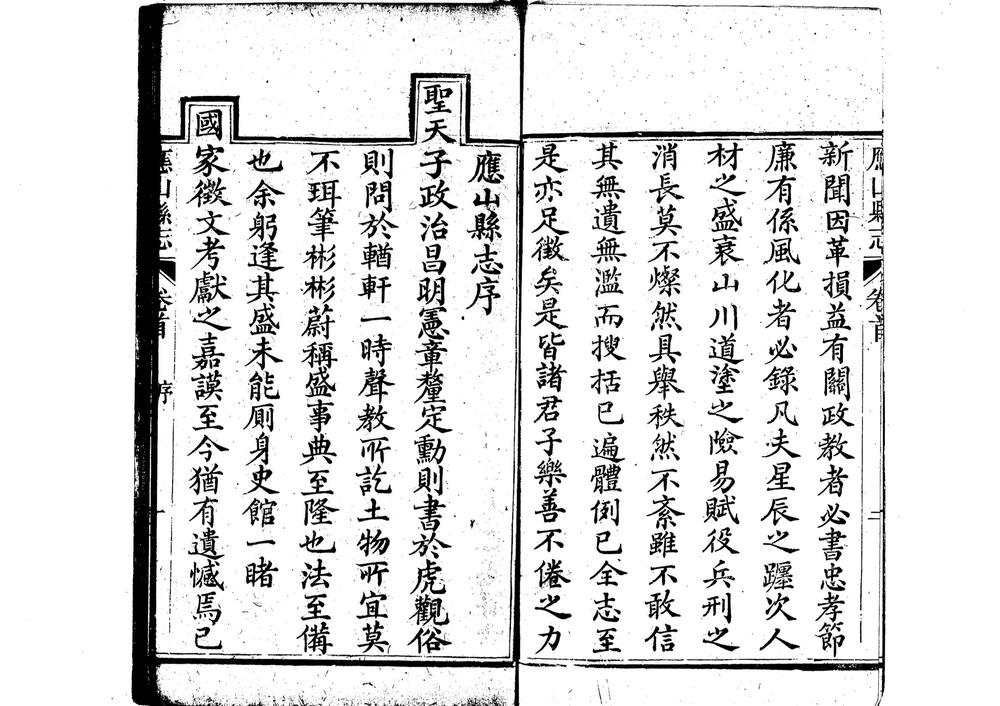 應山縣志 卷首 二
新聞因革損益有關政教者必書忠孝節
廉有係風化者必錄凡夫星辰之躔次人
材之盛衰山川道塗之險易賦役兵刑之
消長莫不燦然具舉秩然不紊雖不敢信
其無遺無濫而搜括已遍體例已全志至
是亦足徵矣是皆諸君子樂善不倦之力
應山縣志序
聖天子政治昌明憲章釐定勳則書於虎觀俗
則問於輶軒一時聲教所訖土物所宜莫
不珥筆彬彬蔚稱盛事典至隆也法至備
也余躬逢其盛未能厠身史館一睹
國家徵文考獻之嘉謨至今猶有遺憾焉已
應山縣志 卷首 序 一